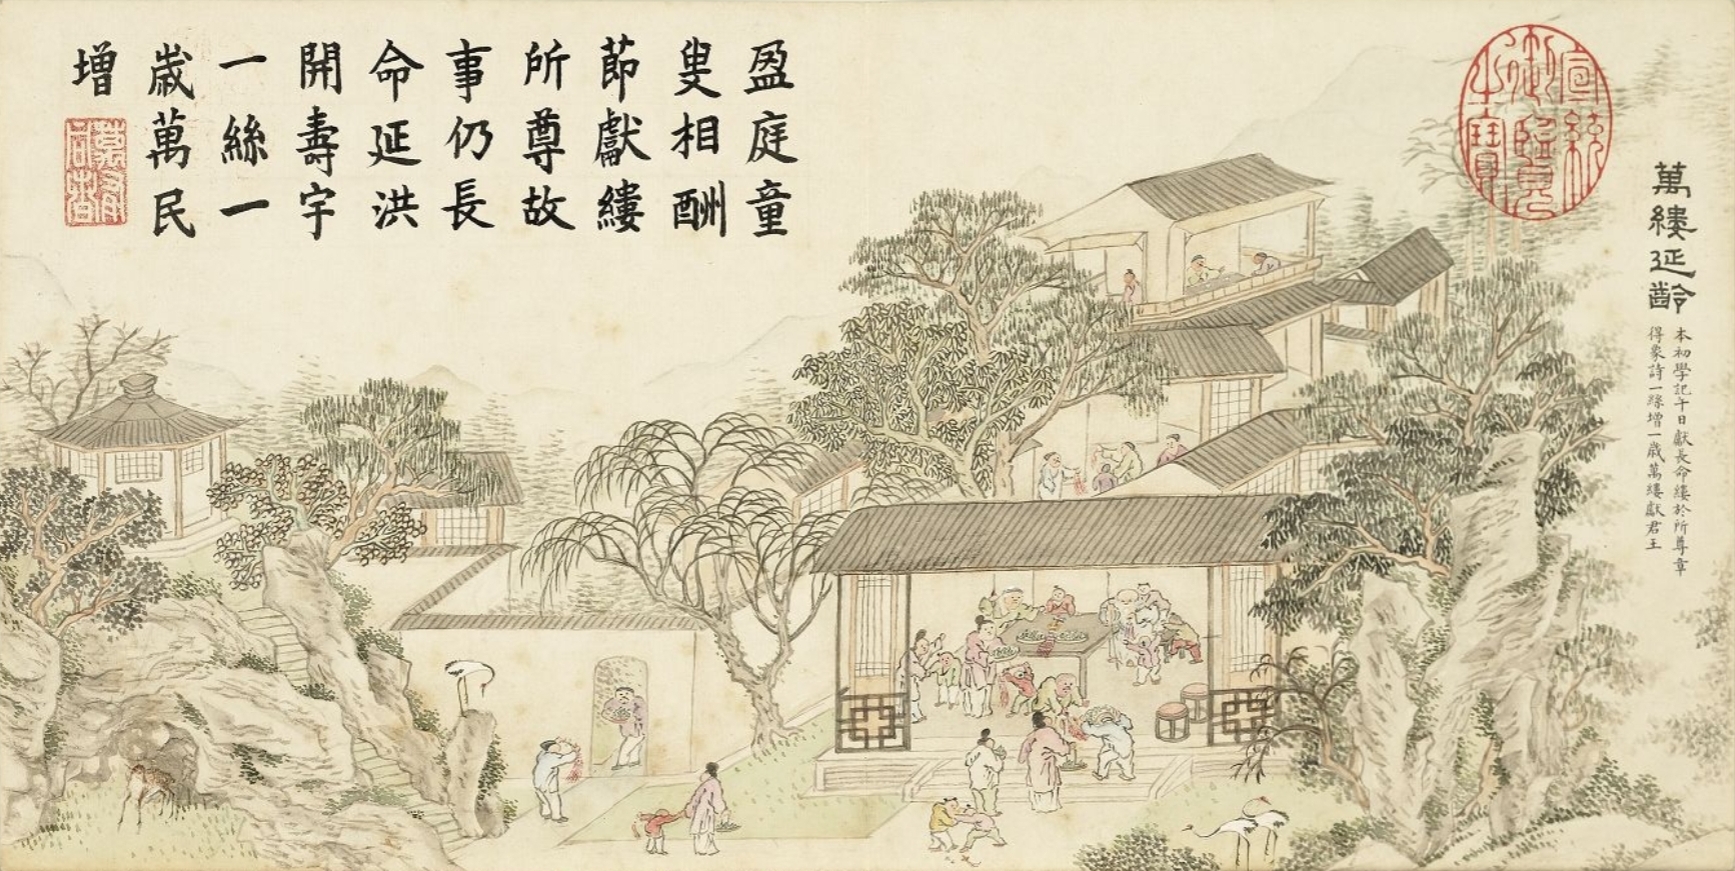 萬縷延齡
本初學記午日獻長命縷於所尊章
得象詩一絲增一歲萬縷獻君王
宣統御覽之寶
盈庭童
叟相酬
節獻縷
所尊故
事仍長
命延洪
開壽宇
一絲一
歲萬民
增